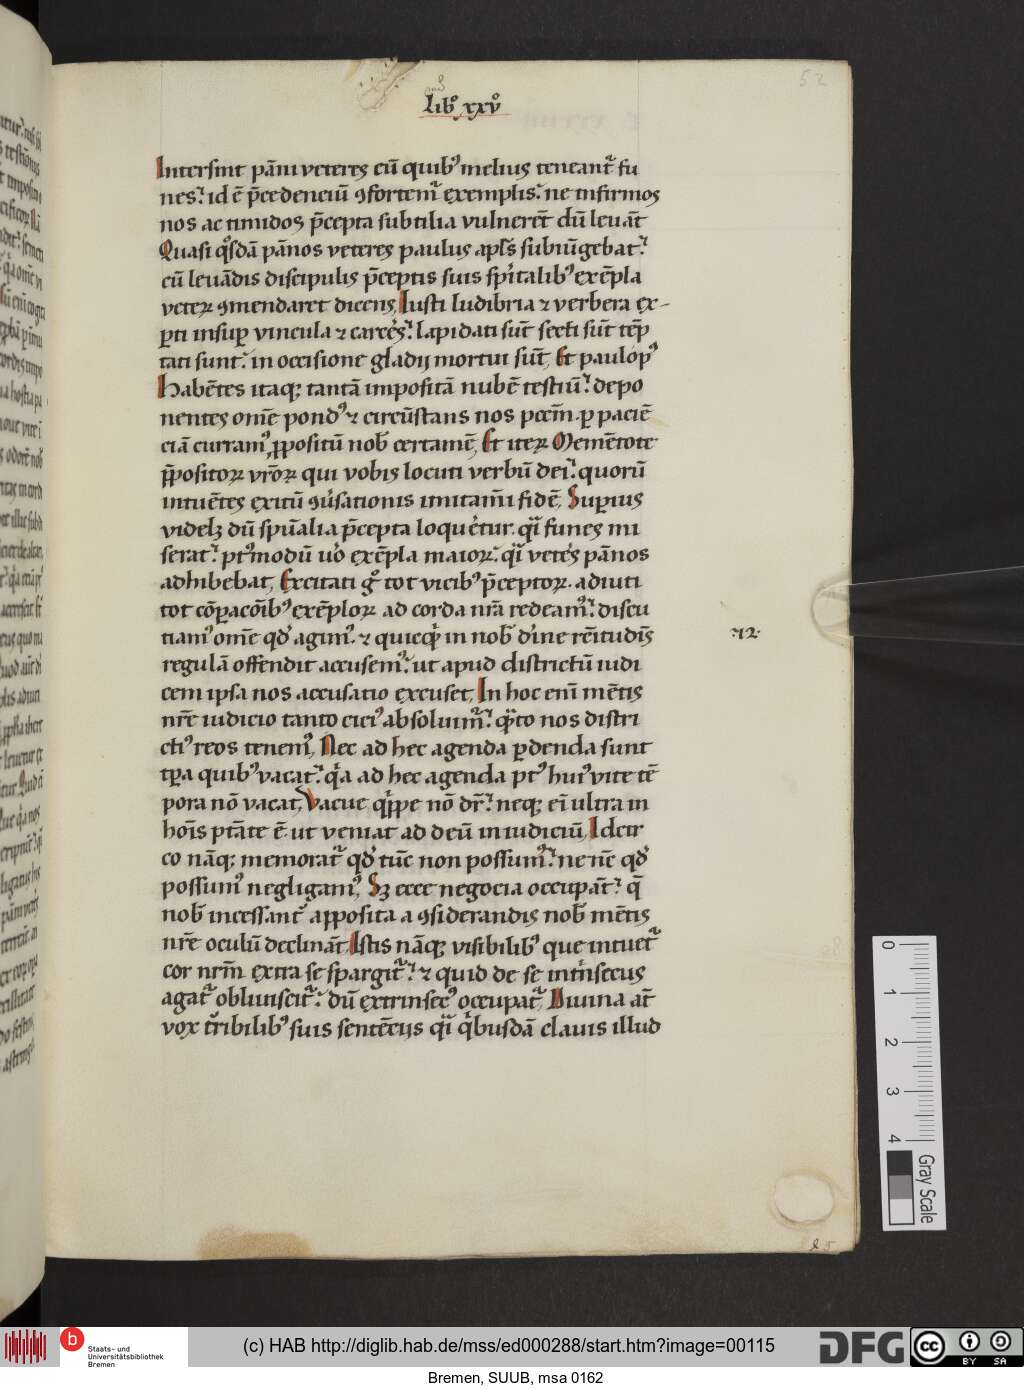 52
Lib⁹ xxv⁹
Intersint pāni veteres cū quib⁹ melius teneant᷑ fu
nes.᷑ id ē p̄cedenciū ꝯfortem᷑ exemplis.᷑ ne infirmos
nos ac timidos p̄cepta subtilia vulnerēt dū leuāt
Quasi q͛sdā pānos veteres paulus apl̄s subiūgebat.᷑
cū leuādis discipulis p̄ceptis suis sp̄italib⁹ exēpla
veteꝝ ꝯmendaret dicens, Iusti ludibria ⁊ verbera ex-
ꝑti insuꝑ vincula ⁊ carcēs.᷑ lapidati sūt secti sūt tēp
tati sunt.᷑ in occisione gladij mortui sūt, Et paulop⁹
Habētes itaqꝫ tantā impositā nubē testiū.᷑ depo
nentes om̄e pond⁹ ⁊ circūstans nos pcc̄m. ꝑ paciē
ciā curram⁹, ꝓpositū nob̄ certamē, Et iteꝝ Memētote
p̄positoꝝ vr̄oꝝ qui vobis locuti verbū dei.᷑ quorū
intuētes exitū ꝯūsationis imitam̄i fidē, Suꝑius
videlꝫ dū spūalia p̄cepta loquēetur. qͣi funes mi
serat.᷑ pt⁹modū u͛o exēpla maioꝝ.᷑ qͣi vetēs pānos
adhibebat, Excitati g͛ tot vicib⁹ p̄ceptoꝝ. adiuti
tot cōꝑacōib⁹ exēploꝝ ad corda nr̄a redeam⁹.᷑ discu
tiam⁹ om̄e qd̄ agim⁹. ⁊ quicq͛d in nob̄ d'ine rc̄itudīs
regulā offendit accusem⁹.᷑ ut apud districtū iudi
cem ipsa nos accusatio excuset, In hoc eni mētis
nr̄e iudicio tanto cici⁹ absoluim᷑.᷑ qͣto nos distri
cti⁹ reos tenem⁹, Nec ad hec agenda ꝑdenda sunt
tꝑa quib⁹ vacat.᷑ q͛a ad hec agenda pt⁹ hui⁹ vite tē
pora nō vacat, Vacue q͛ppe nō dr̄.᷑ neqꝫ ei ultra in
hoīs ptāte ē. ut veniat ad deū in iudiciū, Idcir
co nāqꝫ memorat᷑ qd̄ tūc non possum⁹.᷑ ne nc̄ qd̄
possum⁹ negligam⁹, Sꝫ ecce negocia occupāt.᷑ q̄
nob̄ incessant᷑ apposita a ꝯsiderandis nob̄ mētis
nr̄e oculū declināt, Istis nāqꝫ visibilib⁹ que intuet᷑
cor nrm̄ extra se spargit᷑.᷑ ⁊ quid de se intͥnsecus
agat᷑ obliuiscit᷑.᷑ dū extrinsec⁹ occupat᷑, Diuina aūt
vox tr̄ribilib⁹ suis sentēcijs qͣi q͛busdā clauis illud
·12·
0
1
2
3
4
Gray Scale
b
Staats- und
Universitätsbibliothek
Bremen
(c) HAB http://diglib.hab.de/mss/ed000288/start.htm?image=00115
DFG
cc
BY SA
Bremen, SUUB, msa 0162